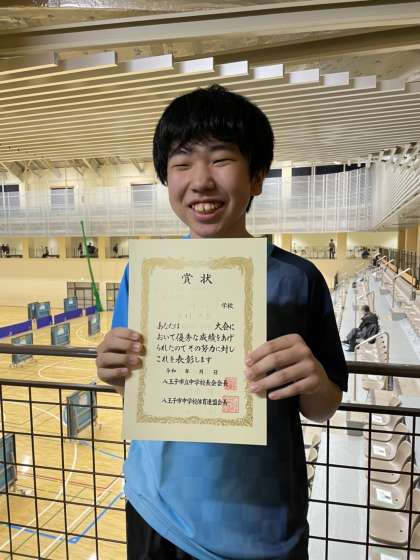 賞状
学校
あなたは 大会に
おいて優秀な成績をあげ
られたのでその努力に対し
これを表彰します
令和 年 月 日
八王子市立中学校長会会長
八王子市中学校体育連盟会長